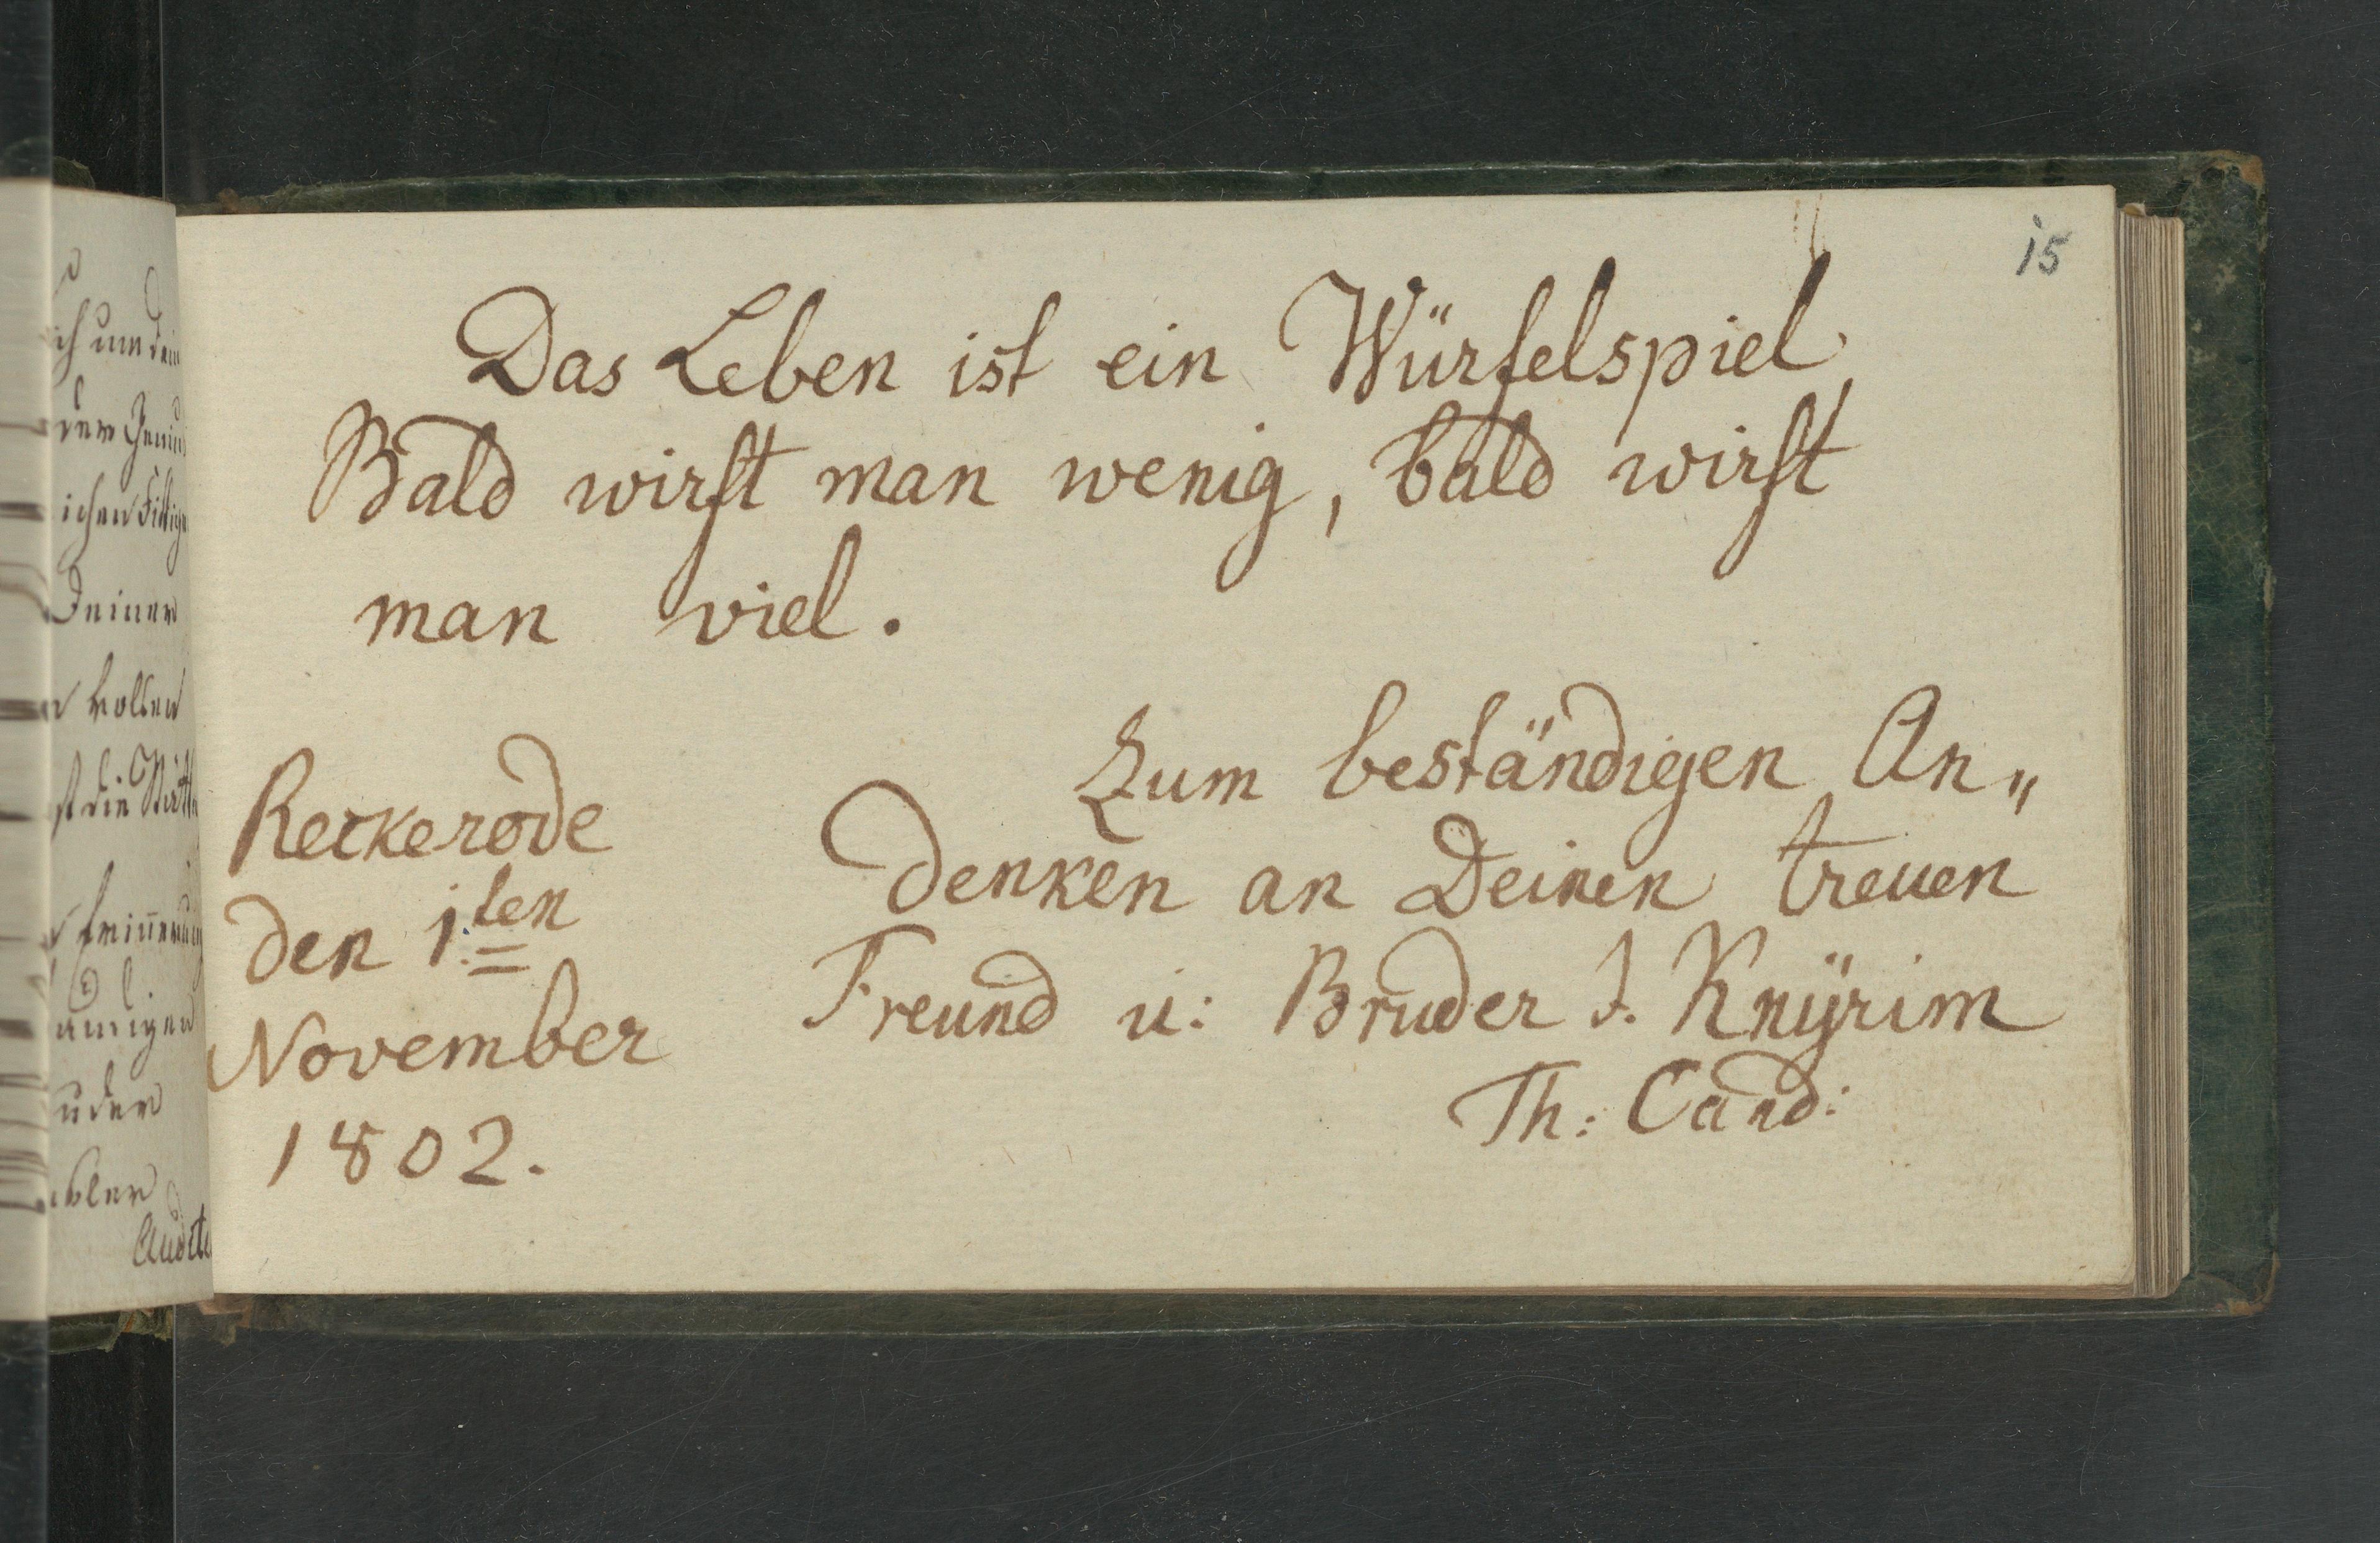 15
Das Leben ist ein Würfelspiel,
Bald wirft man wenig, bald wirft
man viel.
Zum beständigen An„
denken an Deinen treuen
Freund u: Bruder J. Knÿrim
Th: Cand:
Reckerode
den 1.ten
November
1802.